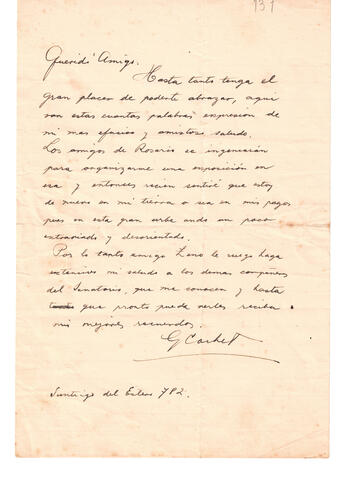 131
Querido Amigo.
Hasta tanto tenga el
gran placer de poderte abrazar, aqui
van estas cuantas palabras expresion de
mi mas efusivo y amistoso saludo.
Los amigos de Rosario se ingeniarán
para organizarme una exposición en
esa y entonces recien sentiré que estoy
de nuevo en mi tierra o sea en mis pagos
pues en esta gran urbe ando un poco
extraviado y desorientado.
Por lo tanto amigo le ruego haga
extensivos mi saludo a los demas compañeros
del Sanatorio, que me conocen y hasta
que pronto pueda verles reciba
mis mejores recuerdos.
G Cochet
Santiago del Estero 782.